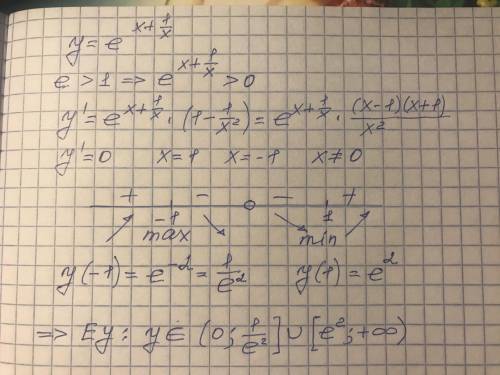 y = e^(x+1/x)
e > 1 => e^(x+1/x) > 0
y' = e^(x+1/x) · (1 - 1/x²) = e^(x+1/x) · (x-1)(x+1)/x²
y' = 0   x = 1   x = -1   x ≠ 0
+ - - +
-1 0 1
max min
y(-1) = e^(-2) = 1/e²   y(1) = e²
=> Ey: y ∈ (0; 1/e²] ∪ [e²; +∞)